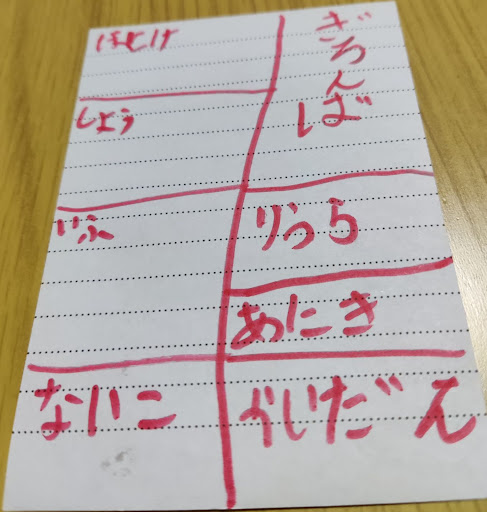 ほとけ
ぎろんば
しょう
いふ
りうら
あにき
ないこ
かいだん